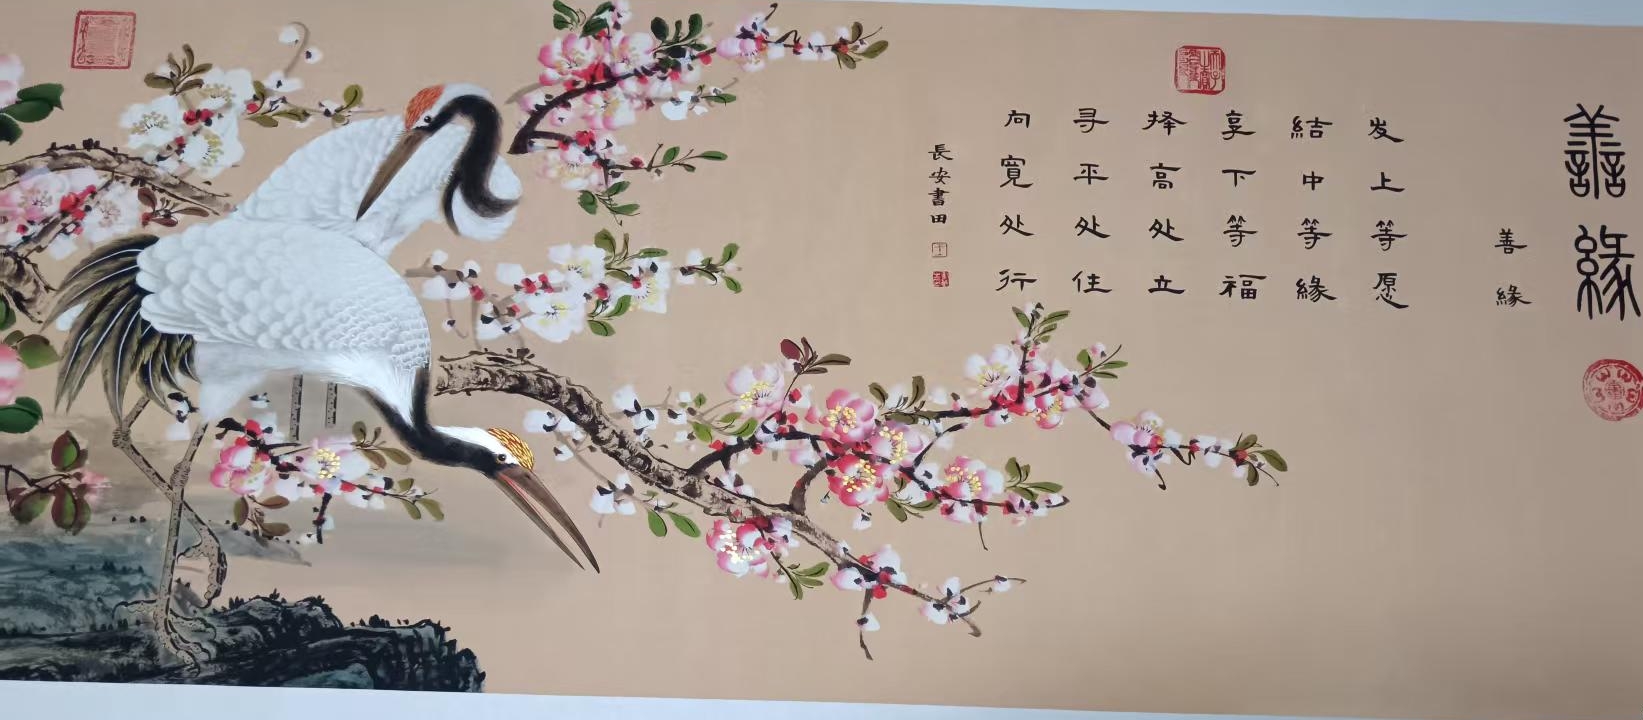 善緣
善緣
发上等愿
結中等緣
享下等福
择高处立
寻平处住
向寬处行
長安書田